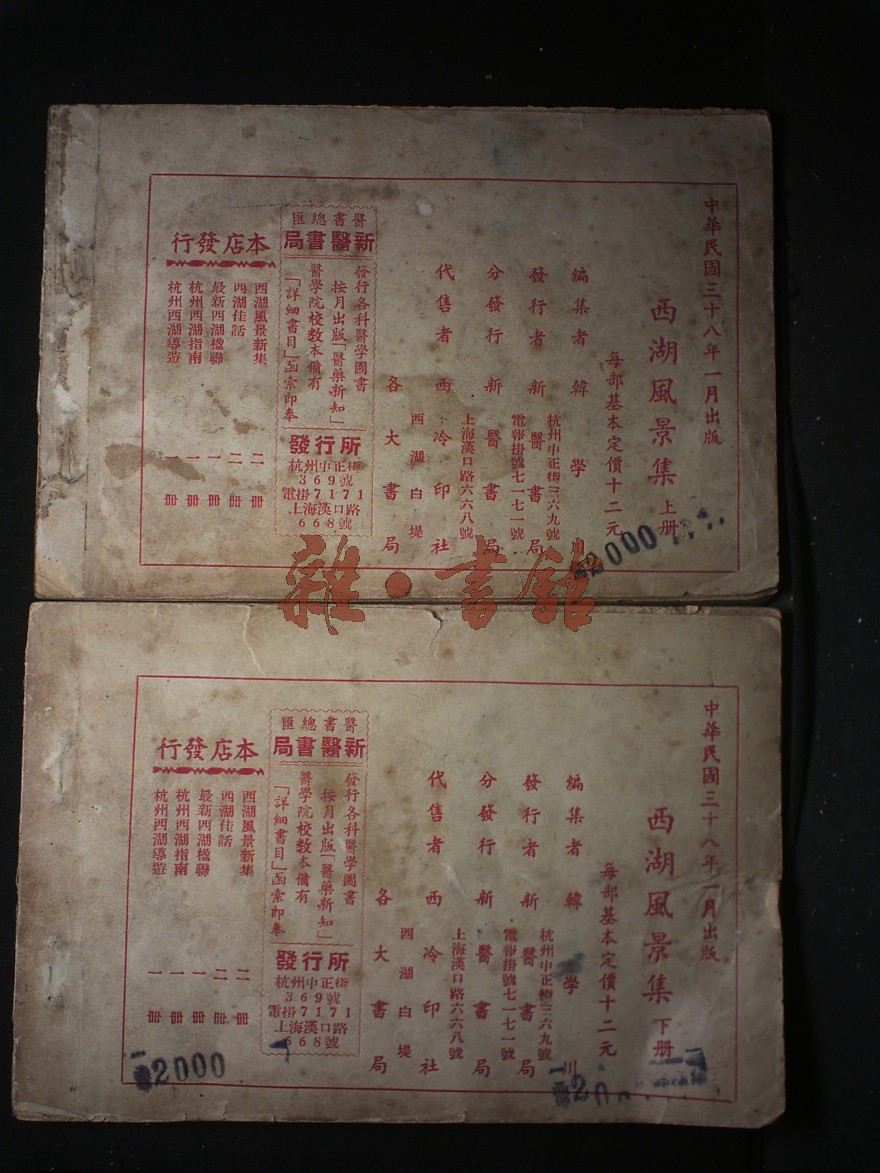 中華民國三十八年一月出版
西湖風景集 上册
每部基本定價十二元
編集者 韓學
發行者 新醫書局
杭州中正街三六九號
電報掛號七一七一號
分發行 新醫書局
上海漢口路六六八號
代售者 西冷印社
西湖白堤
各大書局
醫書總匯
新醫書局
發行各科醫學圖書
按月出版「醫藥新知」
醫學院校教本備有
「詳細書目」函索即奉
發行所
杭州中正街
369號
電掛7171
上海漢口路
668號
本店發行
西湖風景新集 二册
西湖佳話 二册
最新西湖楹聯 一册
杭州西湖指南 一册
杭州西湖導遊 一册
000
雜·書館
中華民國三十八年一月出版
西湖風景集 下册
每部基本定價十二元
編集者 韓學川
發行者 新醫書局
杭州中正街三六九號
電報掛號七一七一號
分發行 新醫書局
上海漢口路六六八號
代售者 西冷印社
西湖白堤
各大書局
醫書總匯
新醫書局
發行各科醫學圖書
按月出版「醫藥新知」
醫學院校教本備有
「詳細書目」函索即奉
發行所
杭州中正街
369號
電掛7171
上海漢口路
668號
本店發行
西湖風景新集 二册
西湖佳話 二册
最新西湖楹聯 一册
杭州西湖指南 一册
杭州西湖導遊 一册
2000
20